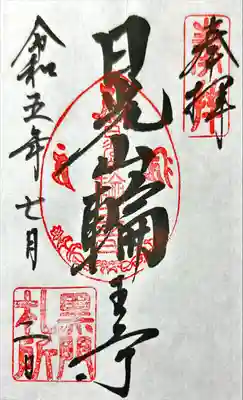 奉拝
日光山輪王寺
令和五年七月
日
黒門
札所